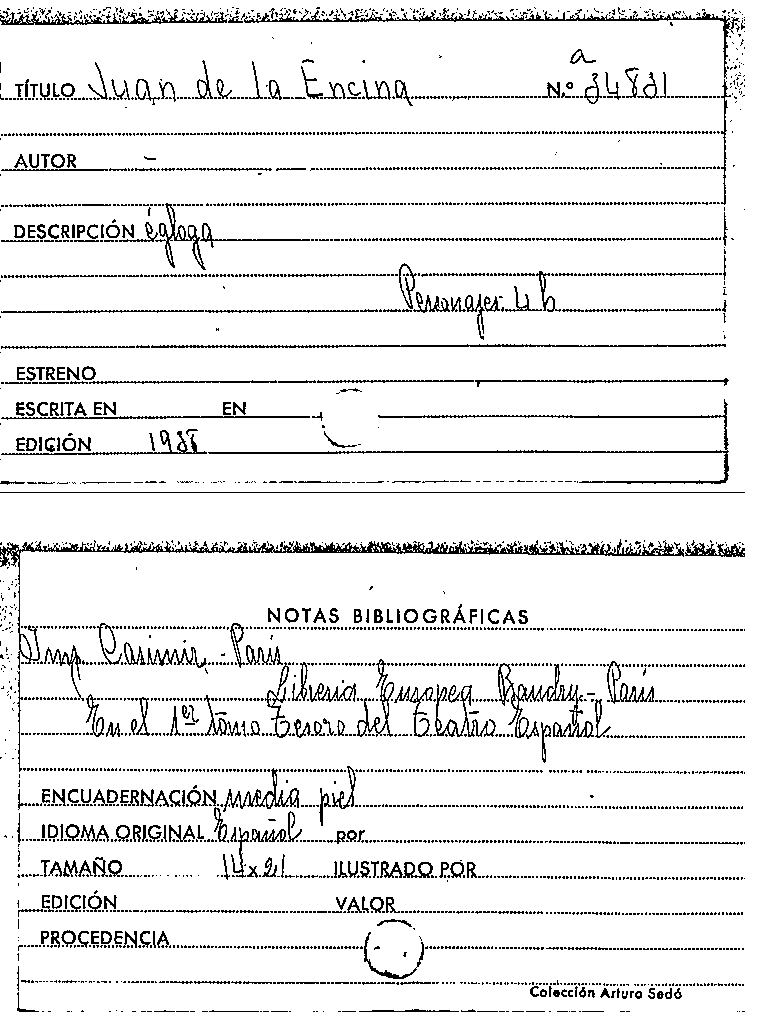 a
TÍTULO Juan de la Encina N.º 34831
AUTOR -
DESCRIPCIÓN égloga
Personajes 4 h
ESTRENO
ESCRITA EN EN
EDICIÓN
NOTAS BIBLIOGRÁFICAS
Imp. Casimir, - París
Librería Europea Baudry - París
En el 1er tomo Tesoro del Teatro Español
ENCUADERNACIÓN media piel
IDIOMA ORIGINAL Español por
TAMAÑO 14x21 ILUSTRADO POR
EDICIÓN VALOR
PROCEDENCIA
Colección Arturo Sedó